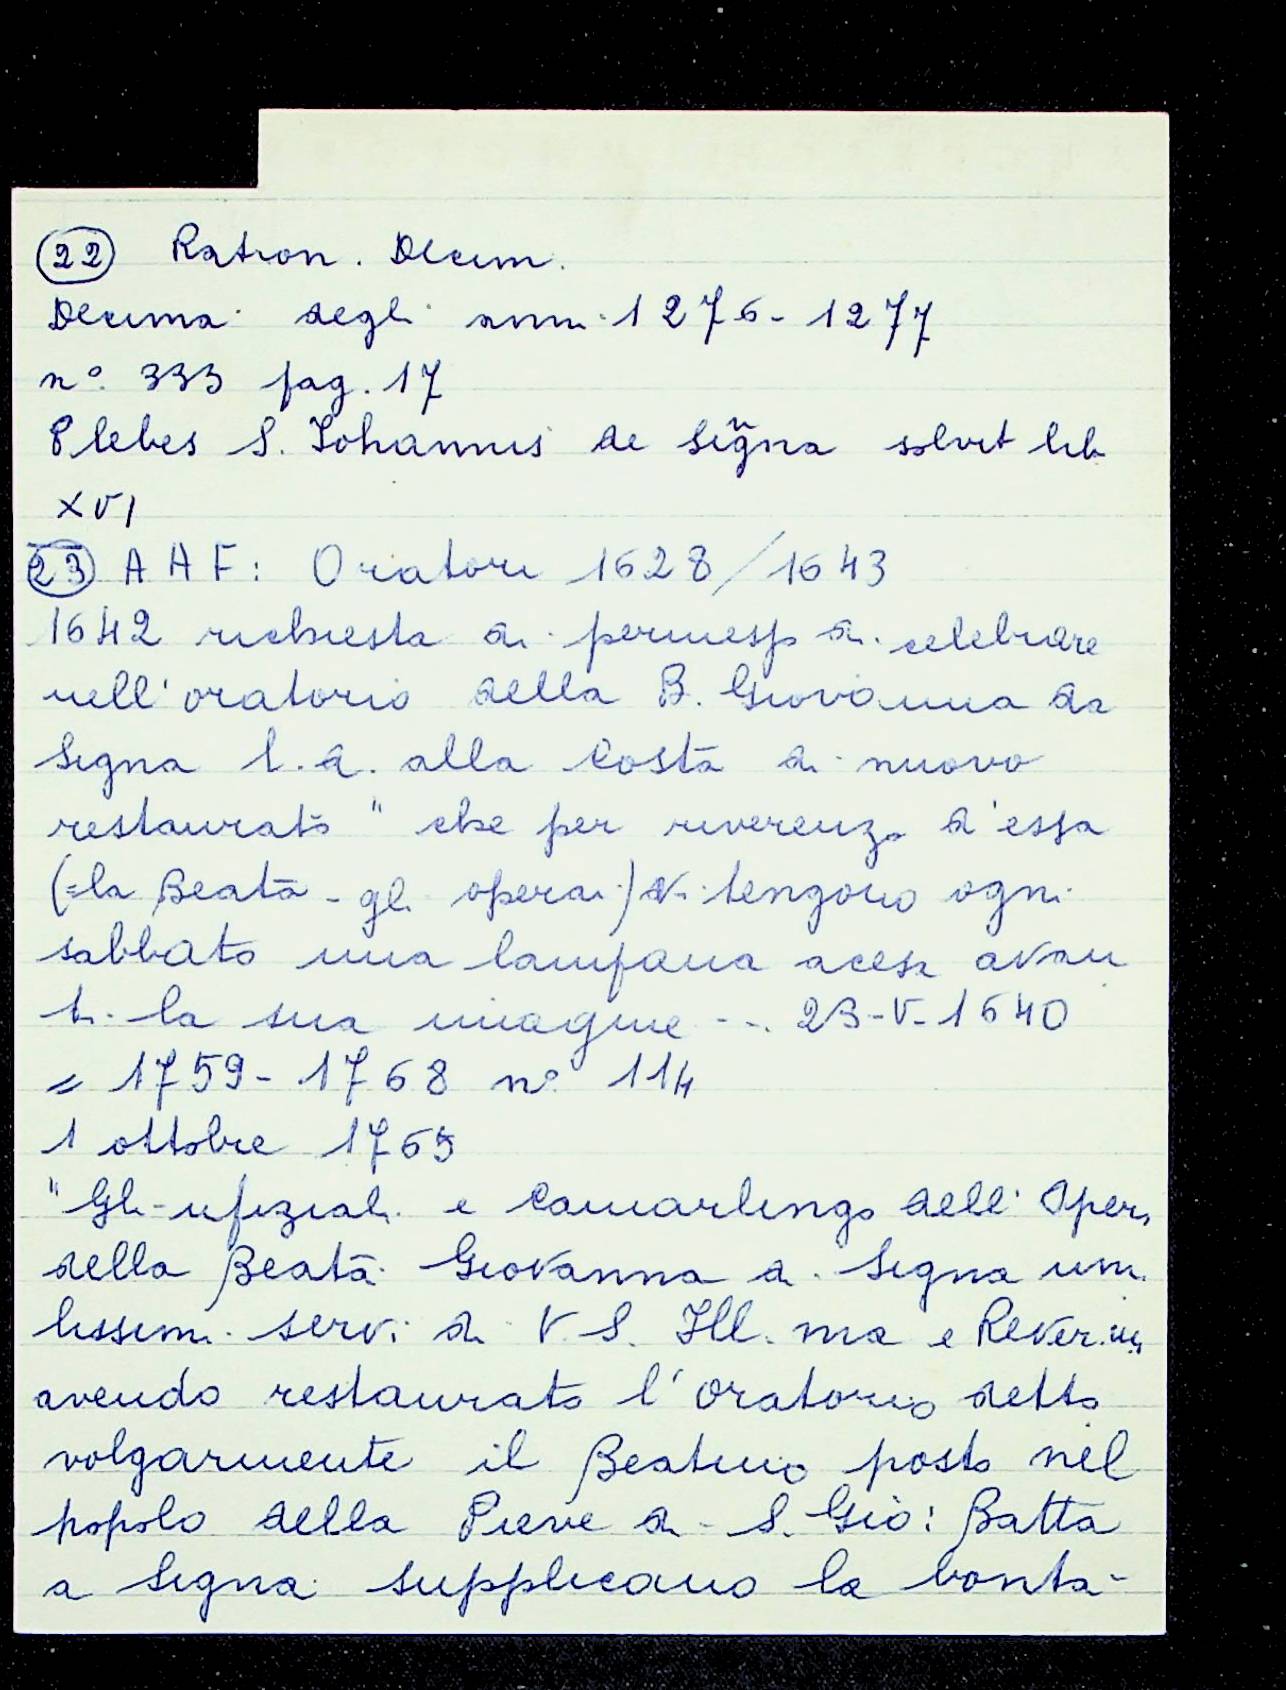 (22) Ration. Decim.
Decima degli anni 1276-1277
n° 333 pag. 17
Plebes S. Iohannis de Sigña solvit lib
XVI
(23) A A F: Oratori 1628/1643
1642 richiesta di permesso di celebrare
nell'oratorio della B. Giovanna da
Signa l.d. alla Costa di nuovo
restaurato "che per riverenza d'essa
(=la Beata - gli operai) vi tengono ogni
sabbato una lampana acesa avan
ti la sua imagine -.. 23-V-1640
= 1759-1768 n° 114
1 ottobre 1765
"Gli ufiziali e Camarlingo dell'Opera
della Beata Giovanna a Signa umi
lissimi servi di V.S. Ill.ma e Rever.ma
avendo restaurato l'oratorio detto
volgarmente il Beatino posto nel
popolo della Pieve di S. Gio: Batta
a Signa supplicano la bontà-